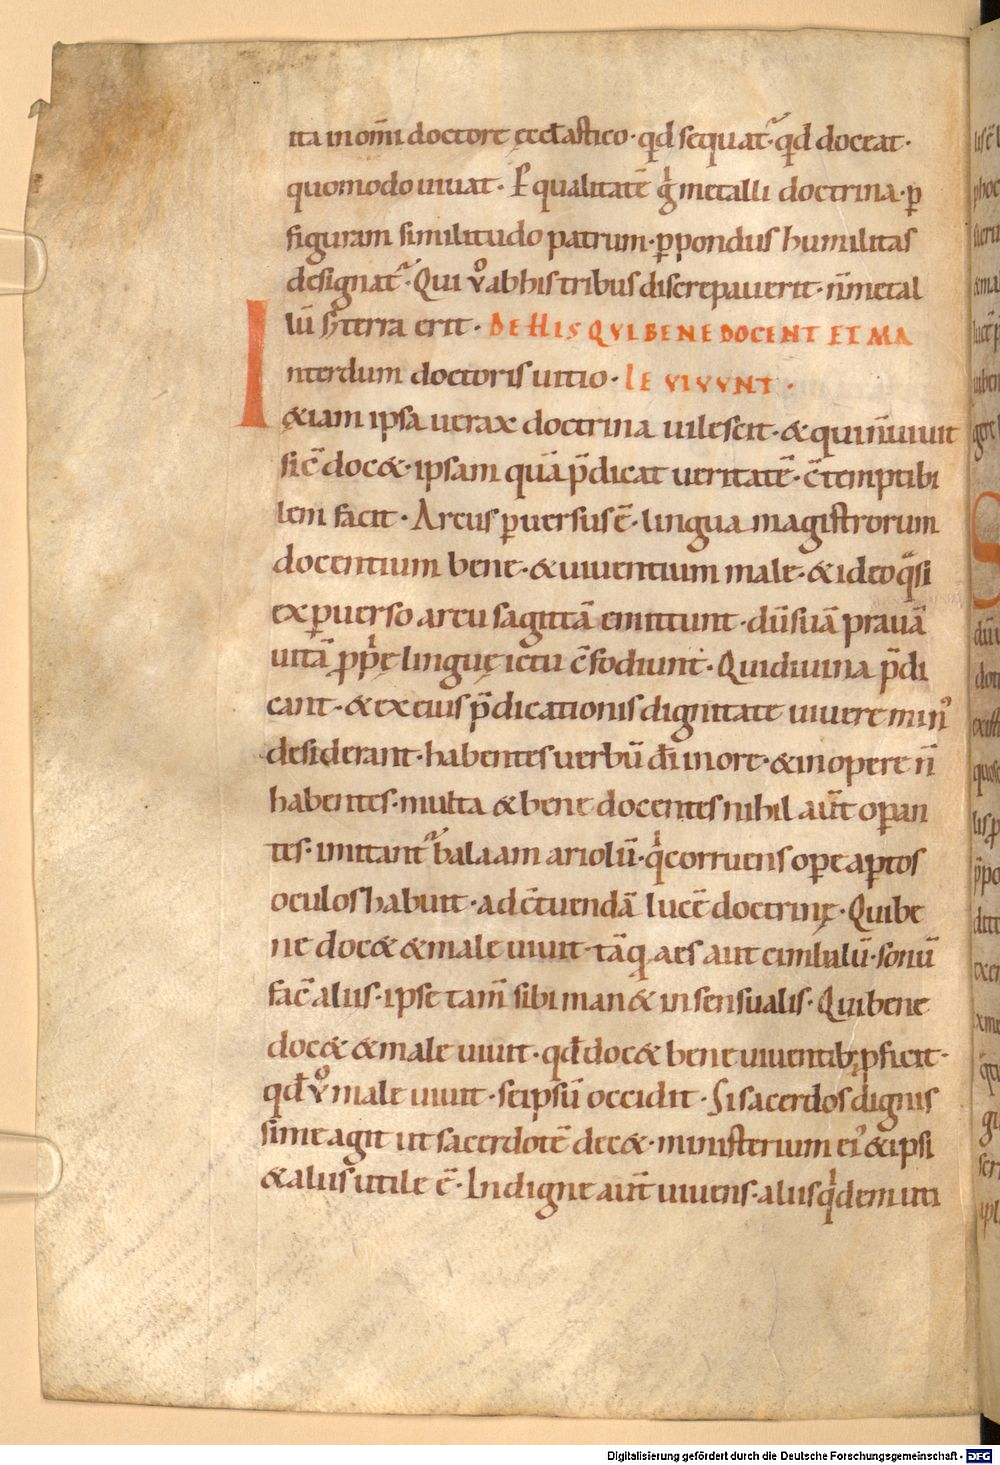 ita in om̄i doctore ęccl̄astico · qd̄ sequat᷑ · qd̄ doceat ·
quomodo uiuat · P̲ qualitatē gͥ metalli doctrina · ꝑ
figuram similitudo patrum · ꝑ pondus humilitas
designat᷑ · Qui v̊ ab his tribus discrepauerit · n̄ metal
lū sʒ terra erit · DE HIS QVI BENE DOCENT ET MA
Interdum doctoris uitio · LE VIVVNT ·
&iam ipsa uerax doctrina uilescit · & qui n̄ uiuit
sic̄ doc& · ipsam quā p̄dicat ueritatē · c̄temptibi
lem facit · Arcus ꝑuersus ē · lingua magistrorum
docentium bene · & uiuentium male · & ideo qͣsi
ex ꝑuerso arcu sagittā emittunt · dū suā prauā
uitā ꝓpͥę linguę ictu c̄fodiunt · Qui diuina p̄di
cant · & ex eius p̄dicationis dignitate uiuere minꝰ
desiderant · habentes uerbū dī in ore · & in opere n̄
habentes · multa & bene docentes nihil aūt oꝑan
tes · imitant᷑ balaam ariolū · qͥ corruens oꝑe aꝑtos
oculos habuit · ad c̄tuendā lucē doctrinę · Qui be
ne doc& & male uiuit · tāq; aes aut cimbalū · sonū
fac̄ aliis · ipse tam̄ sibi man& insensualis · Qui bene
doc& & male uiuit · qd̄ doc& bene uiuentib; ꝓficit ·
qd̄ v̊ male uiuit · seipsū occidit · Si sacerdos dignis
sime agit ut sacerdotē dec& · ministerium eiꝰ & ipsi
& aliis utile ē · Indigne aūt uiuens · aliis qͥdem uti
Digitalisierung gefördert durch die Deutsche Forschungsgemeinschaft - DFG